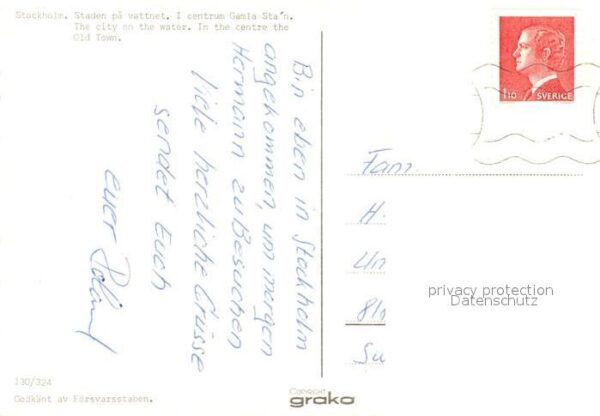 Stockholm. Staden på vattnet. I centrum Gamla Sta´n.
The city on the water. In the centre the
Old Town.
Bin eben in Stockholm
angekommen, um morgen
Hermann zu Besuchen
viele herzliche Grüsse
sendet Euch
euer
1.10 SVERIGE
Fam.
H.
Un
Su
privacy protection
Datenschutz
130/324
Godkänt av Försvarsstaben.
Concept
grako